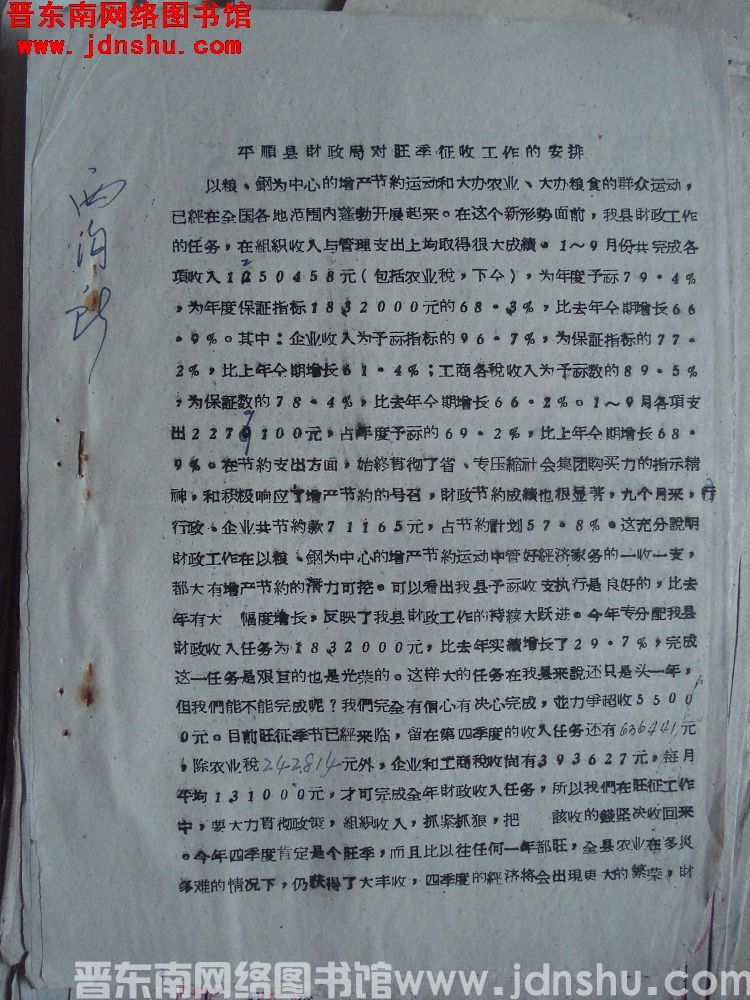 晋东南网络图书馆
www.jdnshu.com
平順县財政局对旺季征收工作的安排
以粮、鋼为中心的增产节約运动和大办农业、大办粮食的群众运动，
已經在全国各地范围内蓬勃开展起来。在这个新形势面前，我县財政工作
的任务，在組织收入与管理支出上均取得很大成績。1～9月份共完成各
項收入1250458元（包括农业稅，下仝），为年度予祘79·4%
，为年度保証指标1832000元的68·3%，比去年仝期增长66
·9%。其中：企业收入为予祘指标的96·7%，为保証指标的77·
2%，比上年仝期增长61·4%；工商各稅收入为予祘数的89·5%
，为保証数的78·4%，比去年仝期增长66·2%。1～9月各項支
出2279100元，占年度予祘的69·2%，比上年仝期增长68·
9%。在节約支出方面，始終貫彻了省、专压縮社会集团购买力的指示精
神，和积极响应了增产节約的号召，財政节約成績也很显著，九个月来，行
行政、企业共节約款71165元，占节約計划57·8%。这充分說明
財政工作在以粮、鋼为中心的增产节約运动中管好經济家务的一收一支，
都大有增产节約的潛力可挖。可以看出我县予祘收支执行是良好的，比去
年有大 幅度增长，反映了我县財政工作的持续大跃进。今年专分配我县
財政收入任务为1832000元，比去年实績增长了29·7%，完成
这一任务是艰巨的也是光荣的。这样大的任务在我县来說还只是头一年，
但我們能不能完成呢？我們完全有信心有决心完成，並力爭超收5500
0元。目前旺征季节已經来临，留在第四季度的收入任务还有636441元
，除农业稅242814元外，企业和工商稅收尙有393627元，每月
平均131000元，才可完成全年財政收入任务，所以我們在旺征工作
中，要大力貫彻政策，組织收入，抓紧抓狠，把 該收的錢坚决收回来
。今年四季度肯定是个旺季，而且比以往任何一年都旺，全县农业在多災
多难的情况下，仍获得了大丰收，四季度的經济将会出現更大的繁荣，財
晋东南网络图书馆www.jdnshu.com